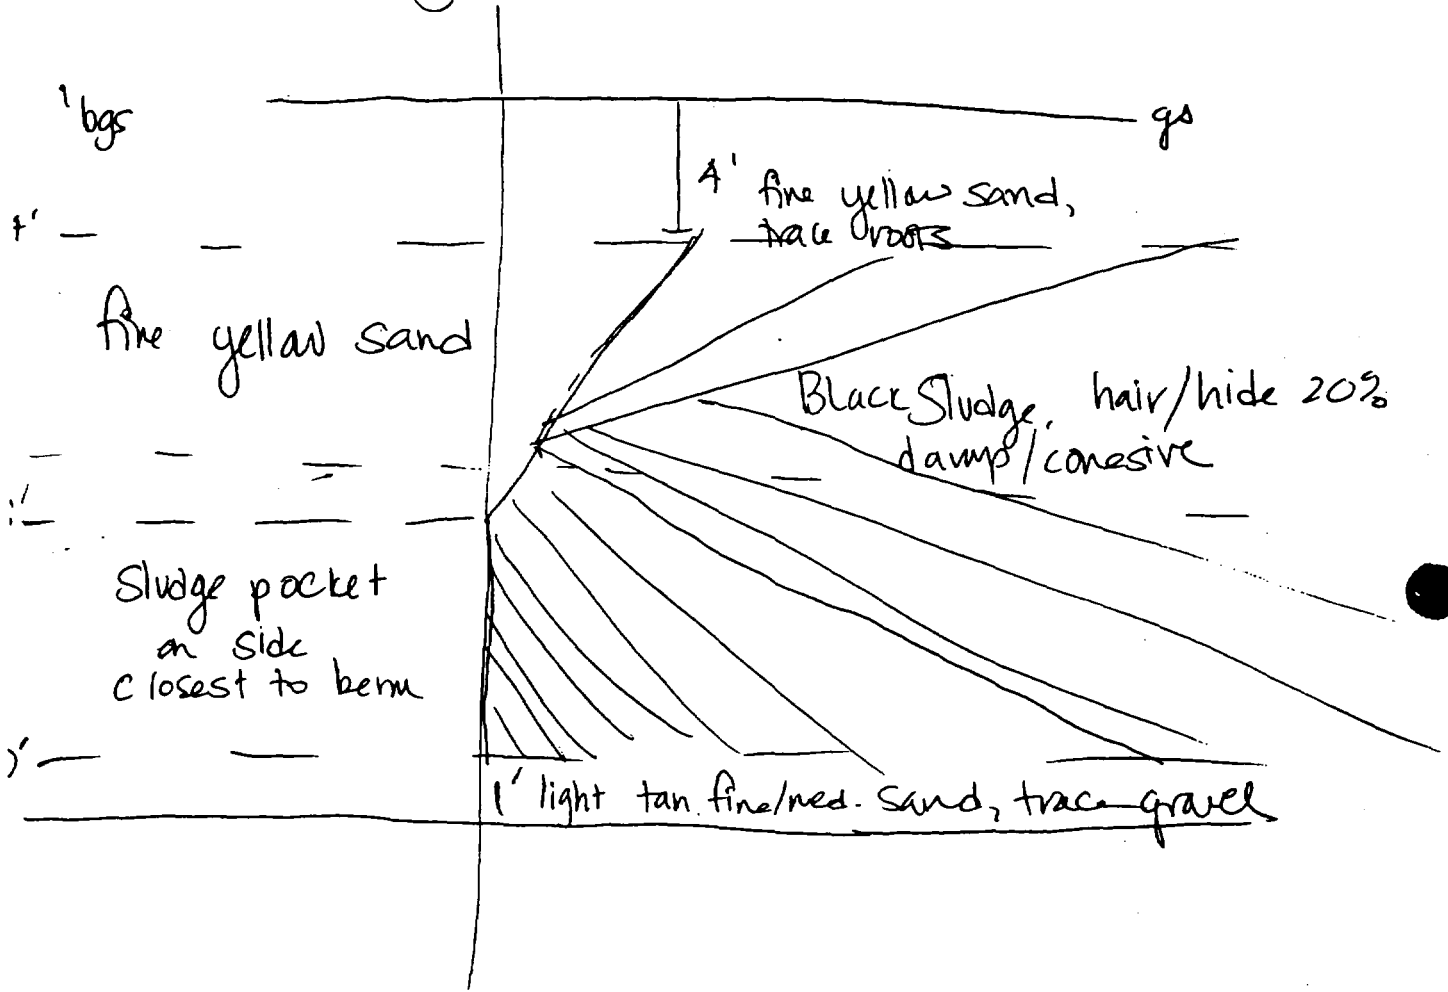 ' bgs
gs
4' fine yellow sand,
trace roots
fine yellow sand
Black Sludge, hair/hide 20%
damp/cohesive
Sludge pocket
on side
closest to berm
1' light tan fine/med. sand, trace gravel